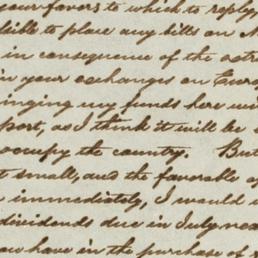 your favors to which to reply
sible to place any bills on N
in consequence of the
in your exchanges on Euro
inging my funds here
port, as I think it will be
occupy the country. But
t small, and the favorable
immediately, I would
dividends due in July nea
have in the purchase of